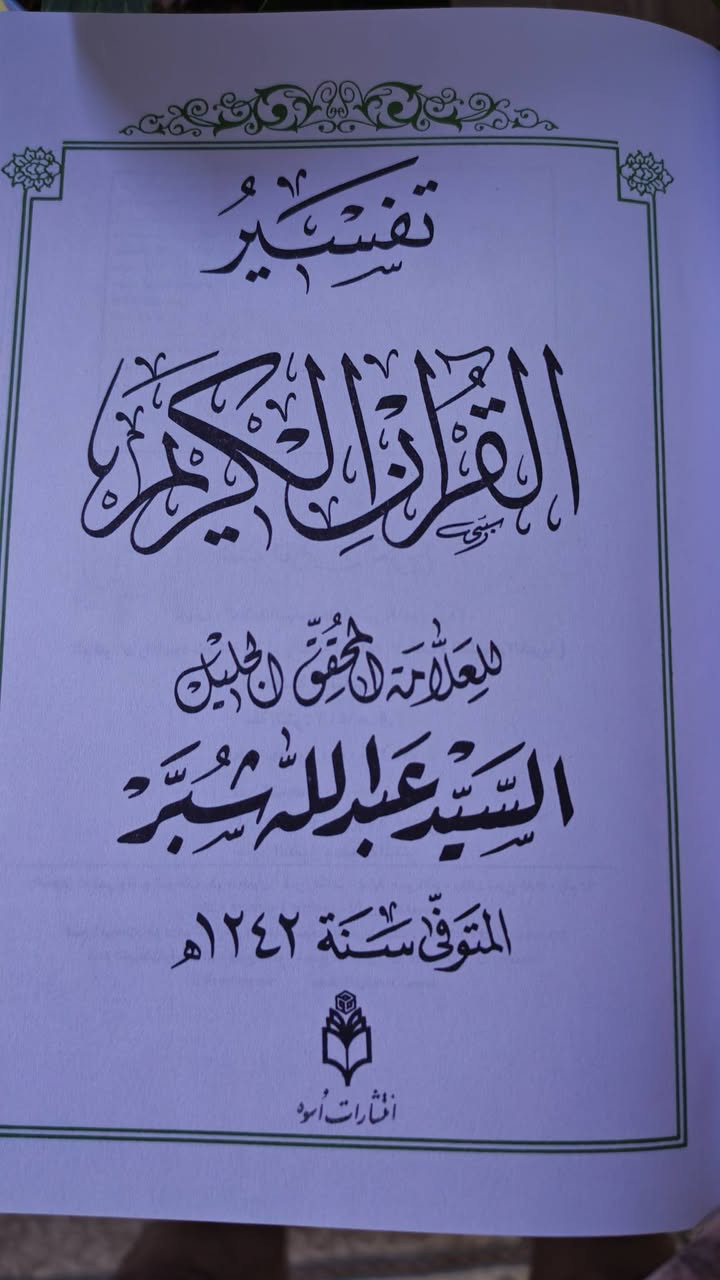 تفسيرُ
القُرآنِ الكريم
للعلّامة المحقّق الجليل
السيّد عبد الله شُبَّر
المتوفّى سنة ١٢٤٢ه
انتشارات أسوه